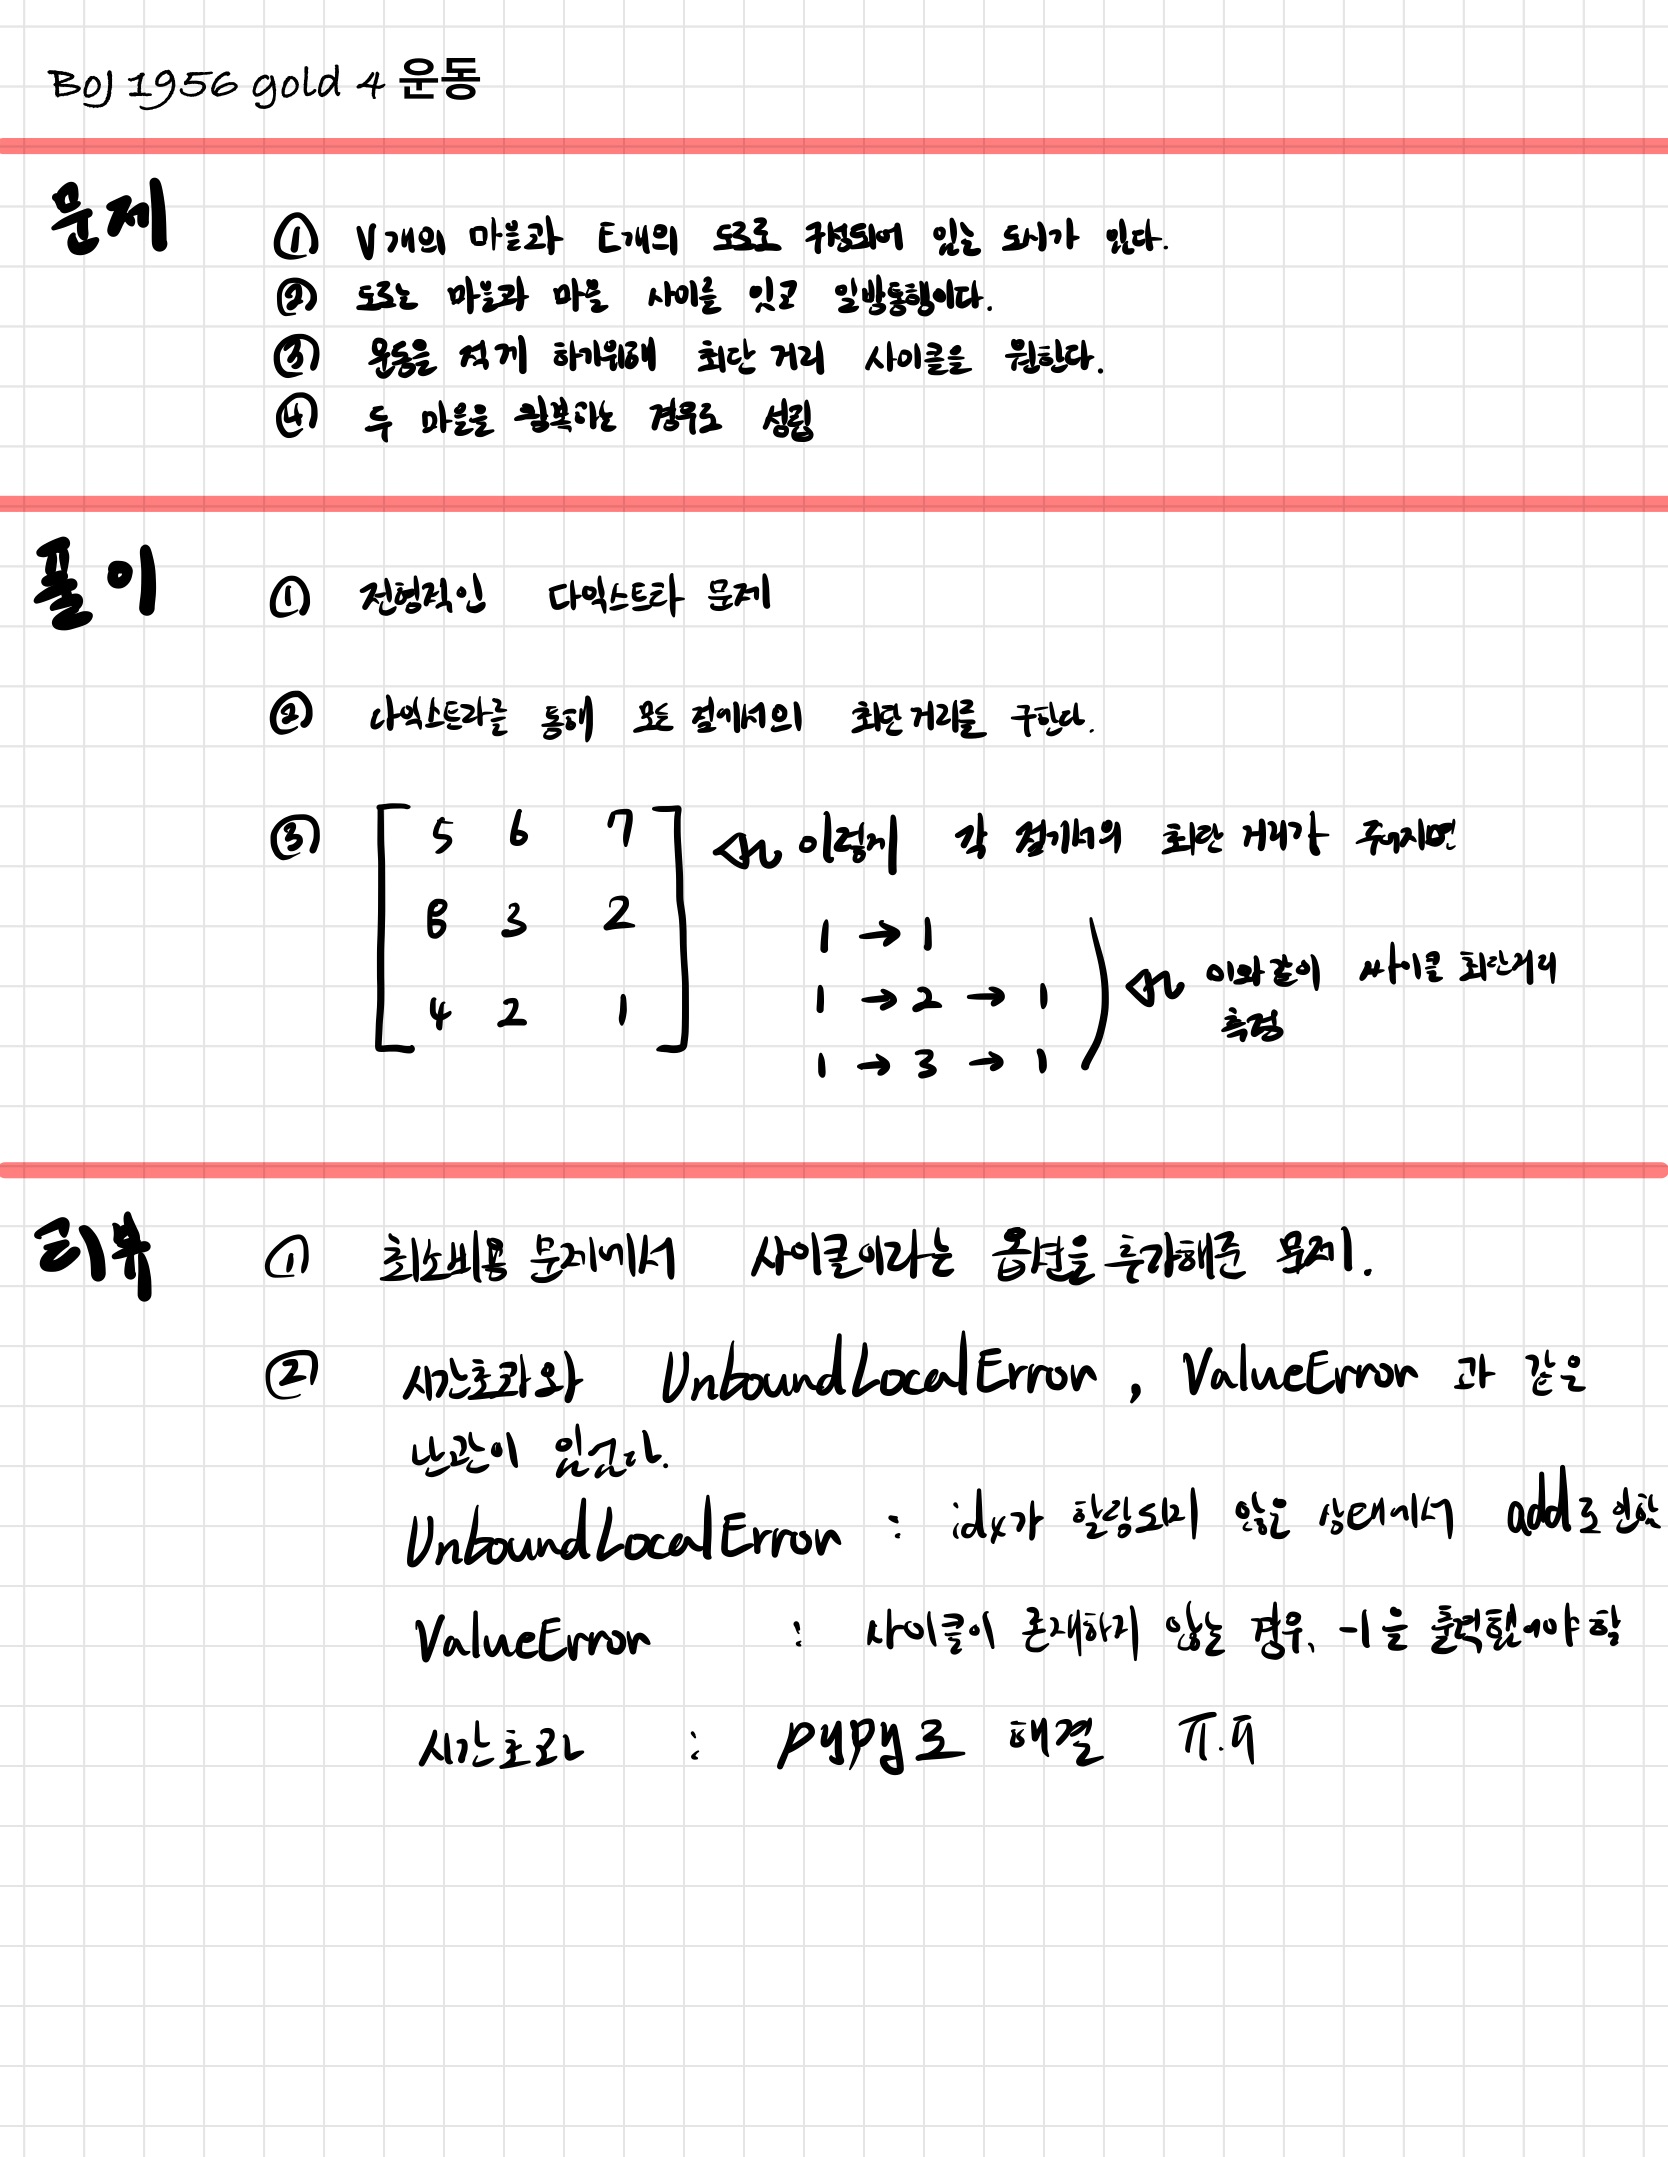 BOJ 1956 gold 4 운동
문제
① V개의 마을과 E개의 도로로 구성되어 있는 도시가 있다.
② 도로는 마을과 마을 사이를 잇고 일방통행이다.
③ 운동을 적게 하기위해 최단 거리 사이클을 원한다.
④ 두 마을을 왕복하는 경우도 성립
풀이
① 전형적인 다익스트라 문제
② 다익스트라를 통해 모든 점에서의 최단거리를 구한다.
③ 5 6 7 이렇게 각 점에서의 최단 거리가 주어지면
8 3 2
4 2 1
1 → 1
1 → 2 → 1
1 → 3 → 1
이와 같이 싸이클 최단거리
측정
리뷰
① 최소비용 문제에서 사이클이라는 옵션을 추가해준 문제.
② 시간초과와 UnboundLocalError, ValueError 과 같은
난관이 있었다.
UnboundLocalError : idx가 할당되지 않은 상태에서 add로 인함
ValueError : 사이클이 존재하지 않는 경우, -1을 출력했어야 함
시간초과 : pypy로 해결 ㅠ.ㅠ